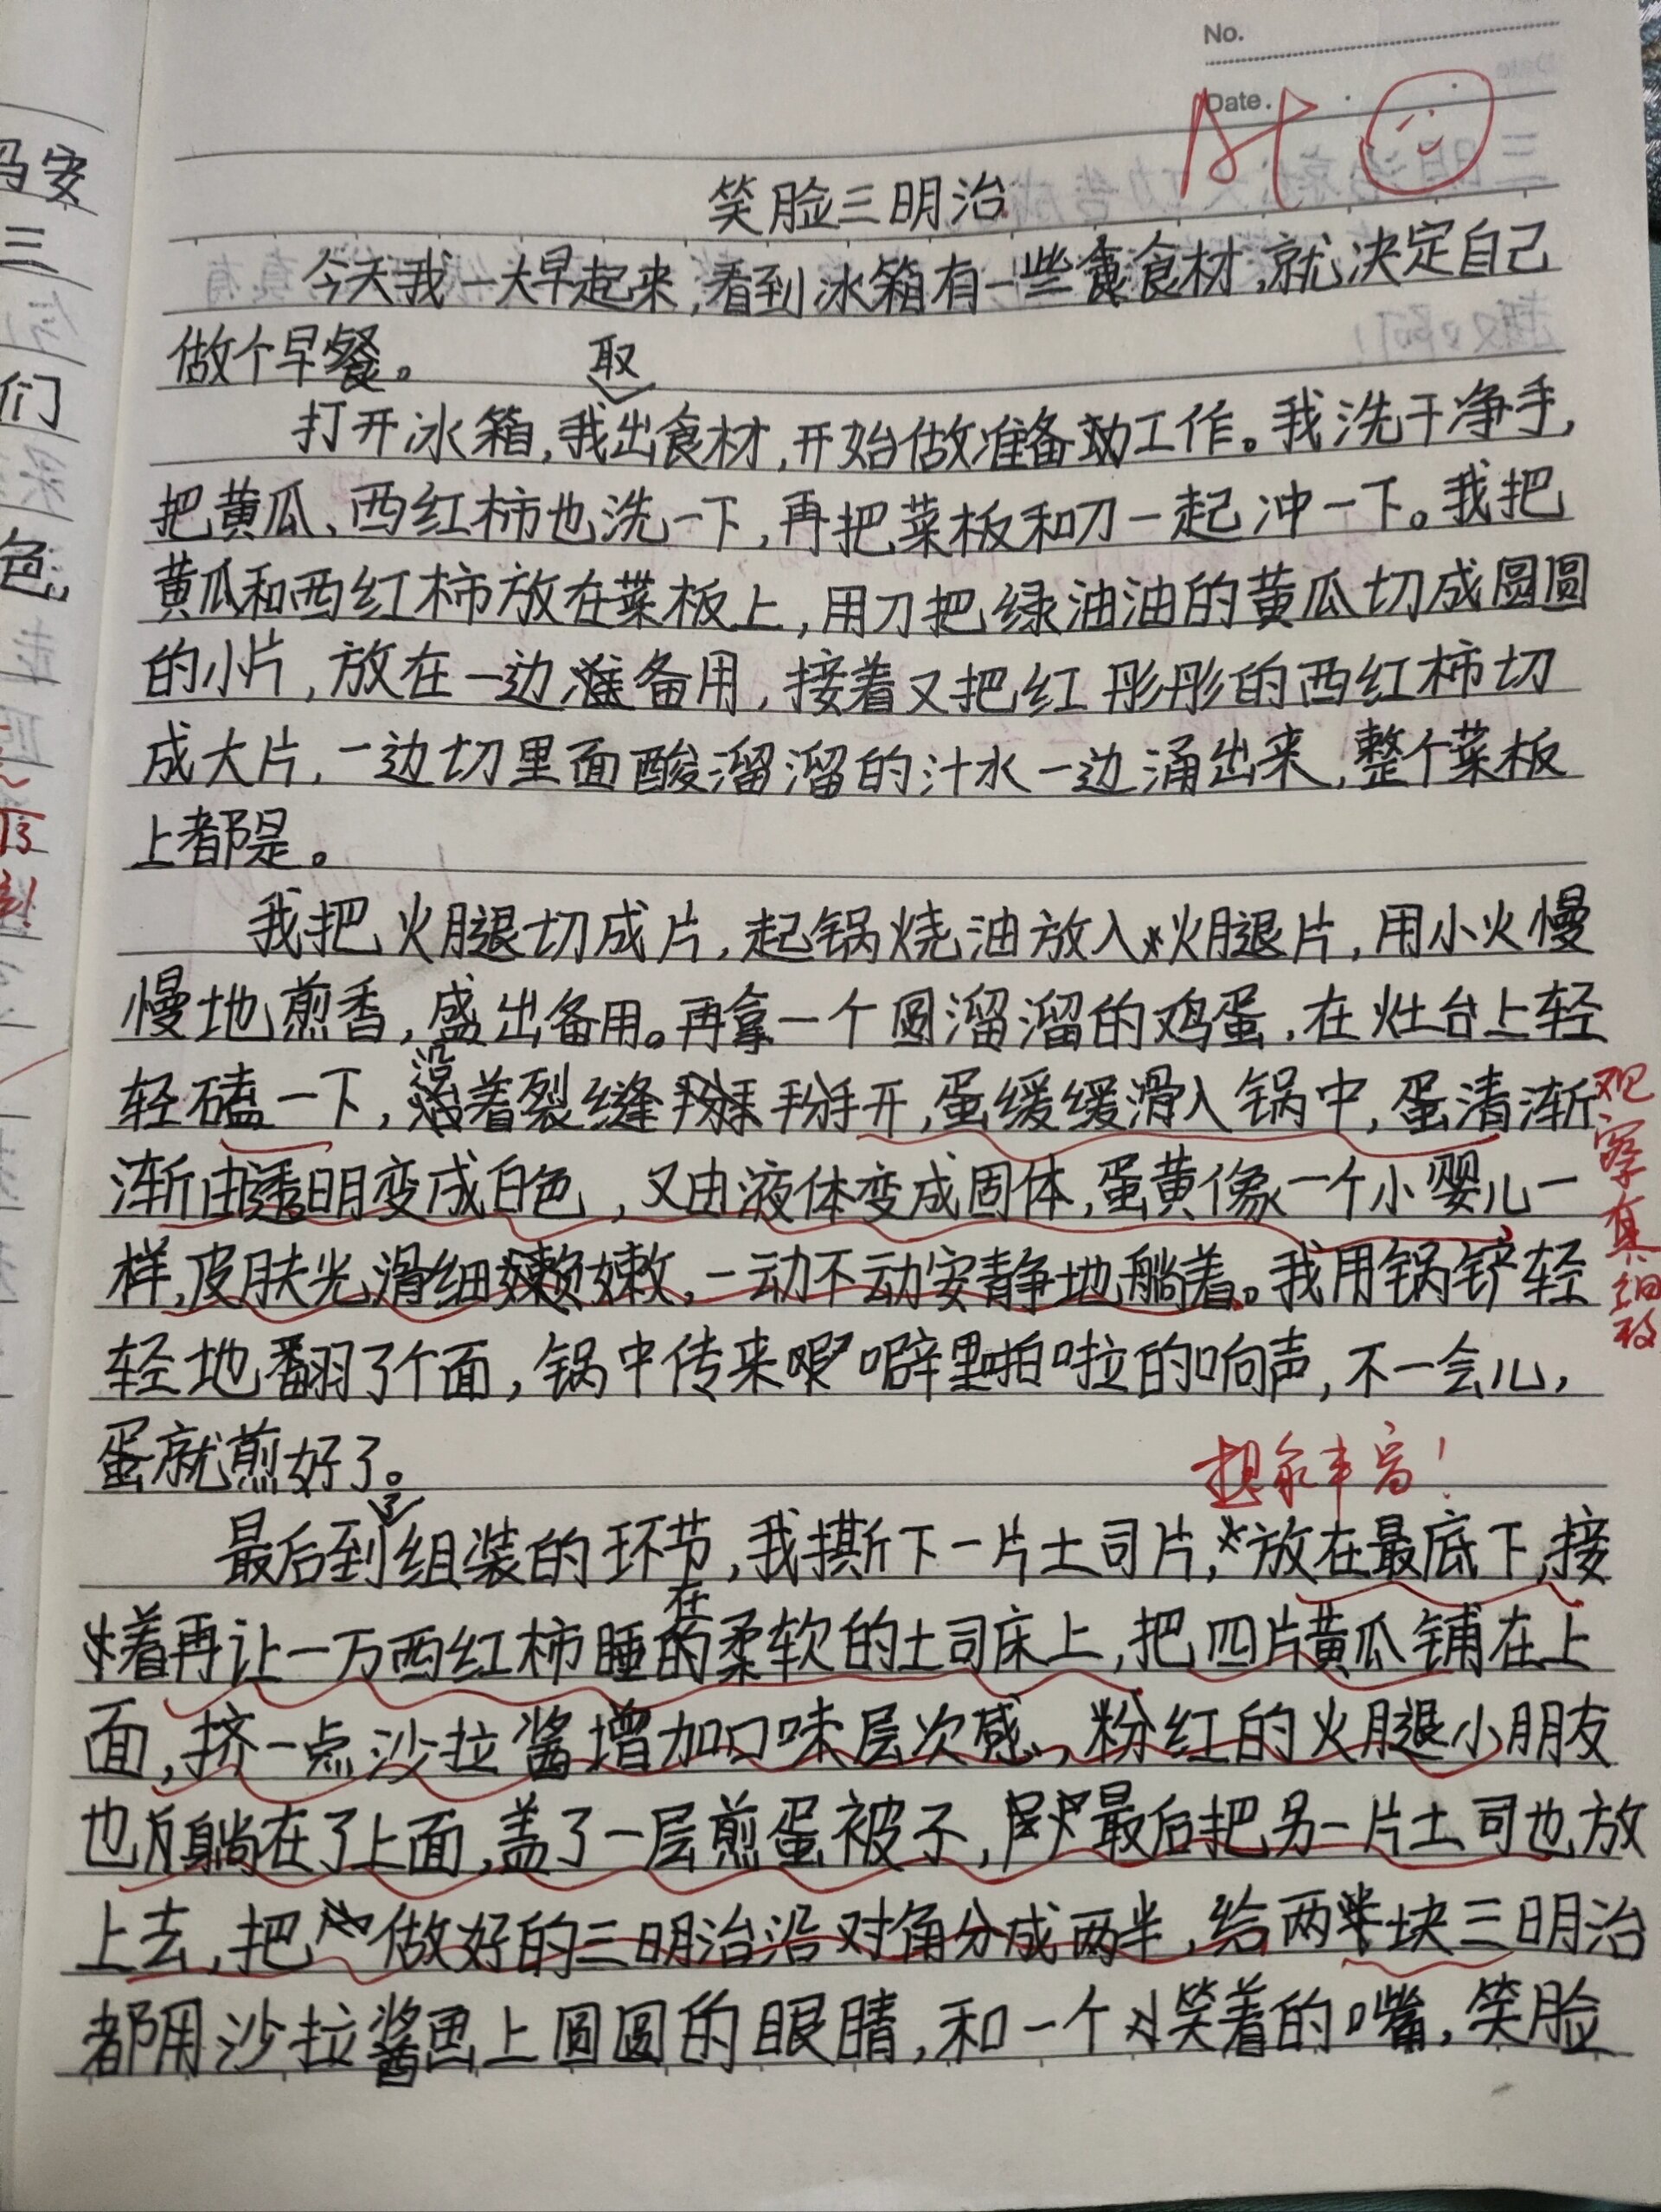 No.
Date.
A+
笑脸三明治
今天我一大早起来,看到冰箱有一些食材,就决定自己
做个早餐。
打开冰箱,我取出食材,开始做准备工作。我洗干净手,
把黄瓜、西红柿也洗一下,再把菜板和刀一起冲一下。我把
黄瓜和西红柿放在菜板上,用刀把绿油油的黄瓜切成圆圆
的小片,放在一边准备用,接着又把红彤彤的西红柿切
成大片,一边切里面酸溜溜的汁水一边涌出来,整个菜板
上都是。
我把火腿切成片,起锅烧油放入火腿片,用小火慢
慢地煎香,盛出备用。再拿一个圆溜溜的鸡蛋,在灶台上轻
轻磕一下,沿着裂缝掰开,蛋缓缓滑入锅中,蛋清渐
渐由透明变成白色,又由液体变成固体,蛋黄像一个小婴儿一
样,皮肤光滑细嫩,一动不动安静地躺着。我用锅铲轻
轻地翻了个面,锅中传来噼里啪啦的响声,不一会儿,
蛋就煎好了。
观察真细致
想象丰富!
最后到了组装的环节,我撕下一片土司片,放在最底下,接
着再让一万西红柿睡在柔软的土司床上,把四片黄瓜铺在上
面,挤一点沙拉酱增加口味层次感,粉红的火腿小朋友
也躺在了上面,盖了一层煎蛋被子,最后把另一片土司也放
上去,把做好的三明治沿对角分成两半,给两块三明治
都用沙拉酱画上圆圆的眼睛,和一个笑着的嘴,笑脸
冯安
三
们
色